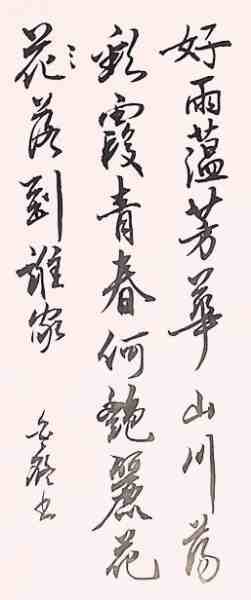 好雨蘊芳華山川蕩
彩霞青春何艷麗花
花落到誰家